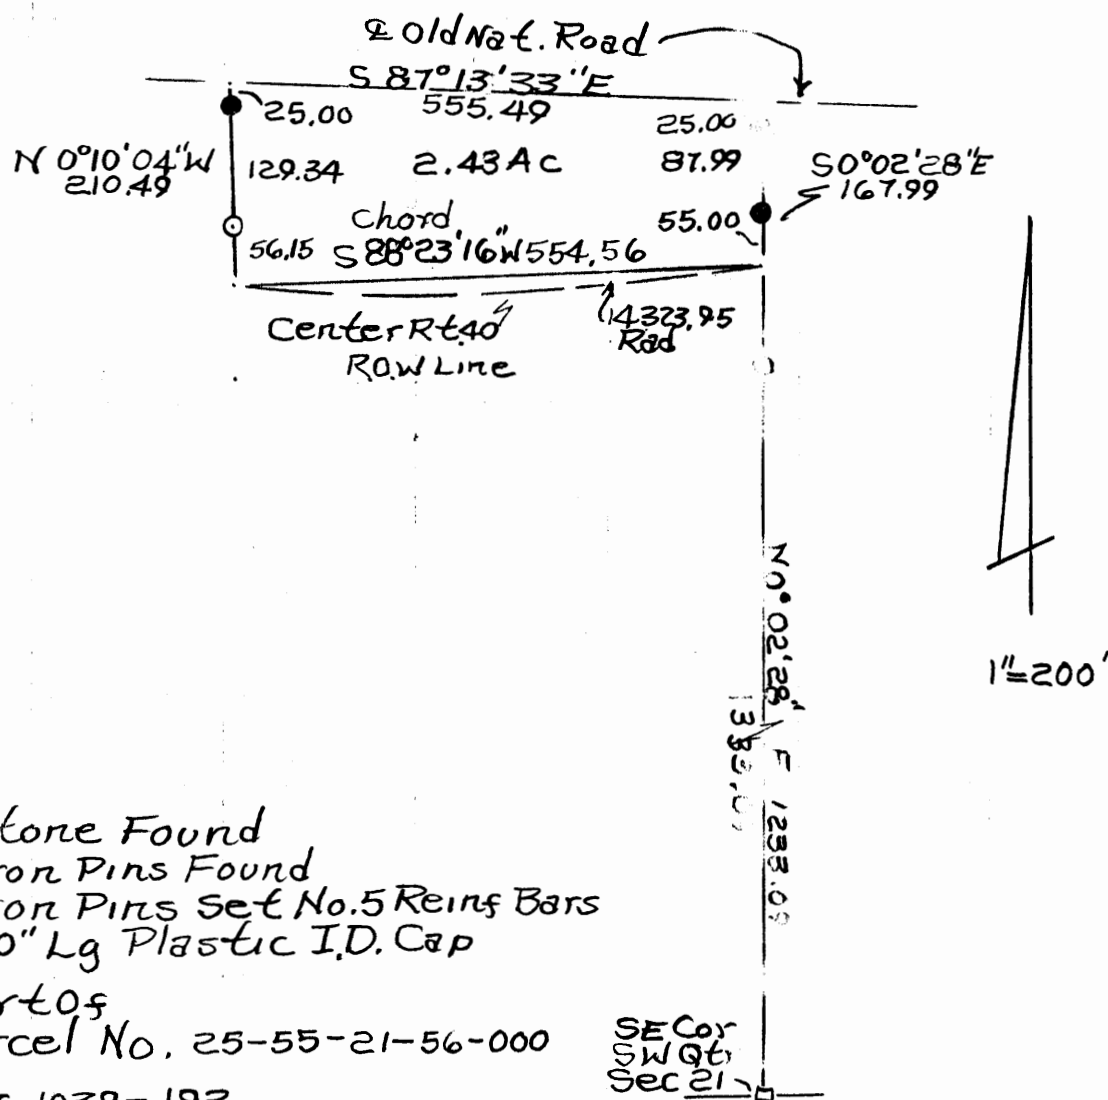 ℄ Old Nat. Road
S 87°13'33"E
555.49
25.00
25.00
N 0°10'04"W
210.49
129.34
2.43 Ac
87.99
S0°02'28"E
167.99
Chord
55.00
56.15
S 88°23'16"W 554.56
Center Rt.40
ROW Line
14323.95
Rad
N 0°02'28" E 1233.09
1"=200'
tone Found
ron Pins Found
ron Pins Set No.5 Reinf Bars
0" Lg Plastic I.D. Cap
rt Of
rcel No. 25-55-21-56-000
SE Cor
SW Qt.
Sec 21